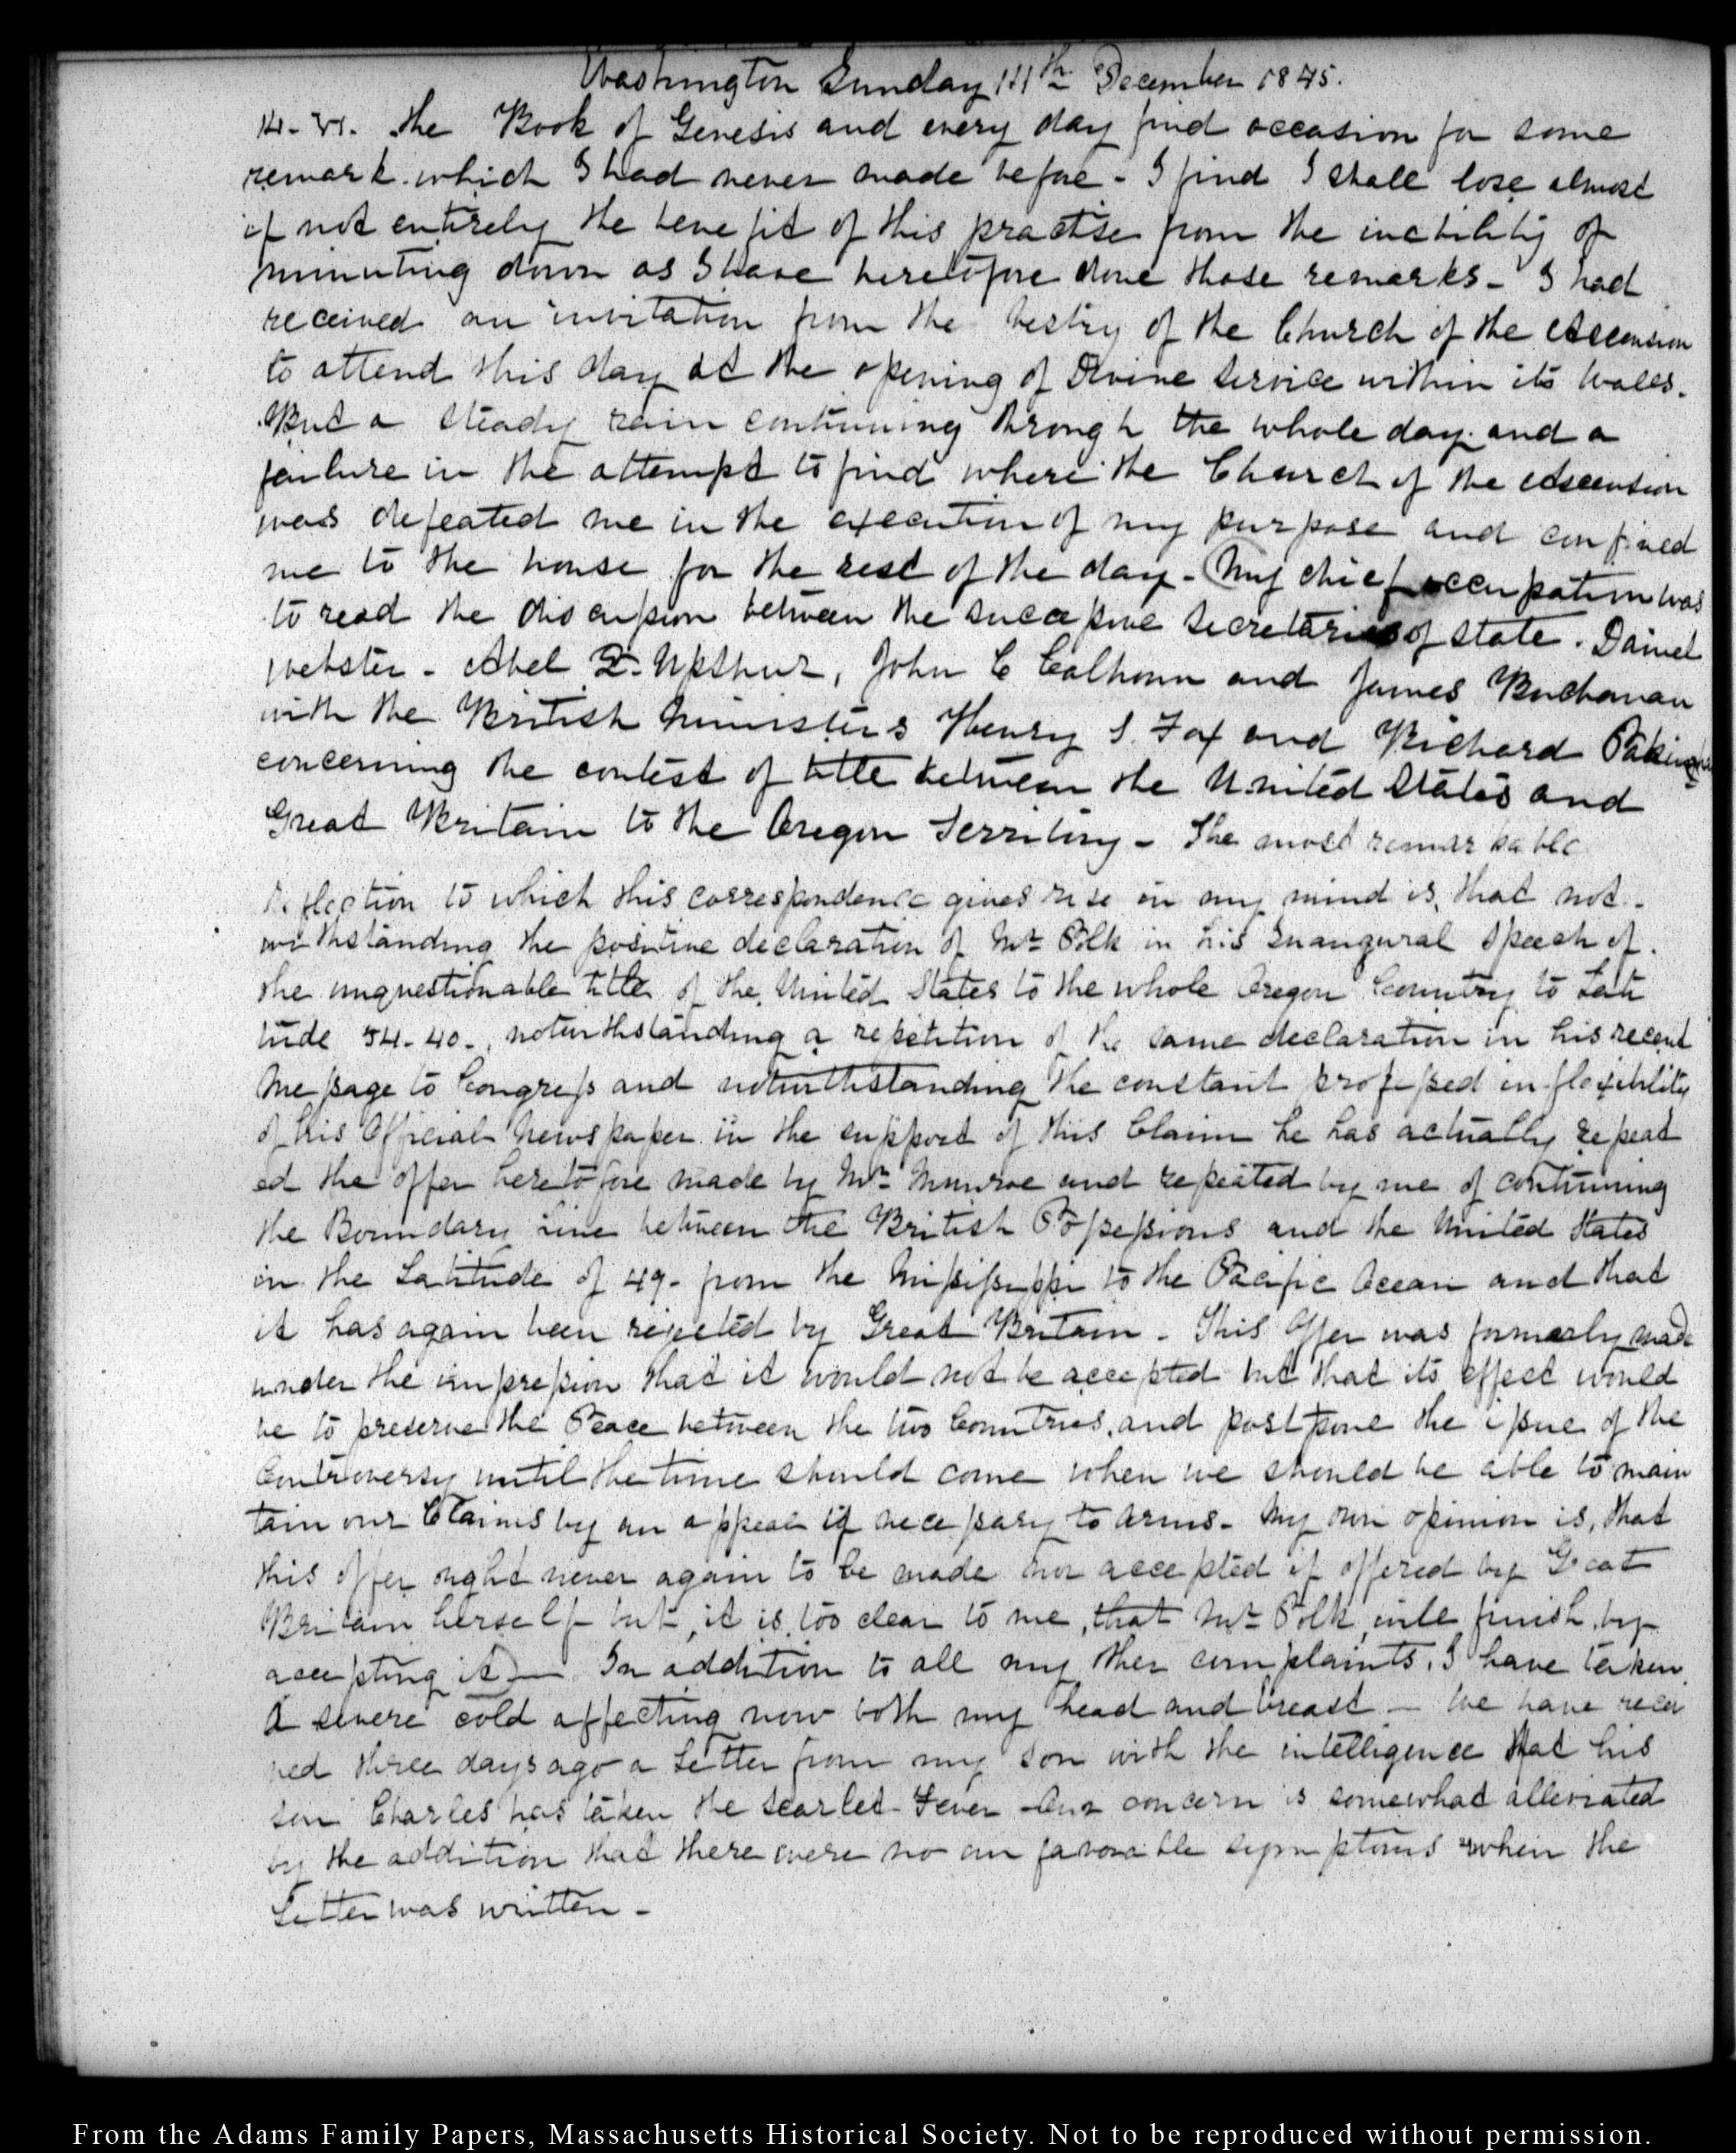 Washington Sunday 14th December 1845.
14. VI. the Book of Genesis and every day find occasion for some
remark which I had never made before - I find I shall lose almost
if not entirely the benefit of this practise from the inability of
minuting down as I have heretofore done those remarks - I had
received an invitation from the Vestry of the Church of the Ascension
to attend this day at the opening of Divine Service within its walls.
But a steady rain continuing through the whole day and a
failure in the attempt to find where the Church of the Ascension
was defeated me in the execution of my purpose and confined
me to the house for the rest of the day - My chief occupation was
to read the discussion between the successive Secretaries of State. Daniel
Webster - Abel P. Upshur, John C Calhoun and James Buchanan
with the British Ministers Henry S. Fox and Richard Pakingham
concerning the contest of title between the United States and
Great Britain to the Oregon Territory - The most remarkable
reflection to which this correspondence gives rise in my mind is, that not-
withstanding the positive declaration of Mr Polk in his Inaugural Speech of
the unquestionable title of the United States to the whole Oregon Country to Lati
tude 54-40-, notwithstanding a repetition of the same declaration in his recent
Message to Congress and notwithstanding the constant professed inflexibility
of his Official Newspaper in the support of this Claim he has actually repeat
ed the offer heretofore made by Mr Munroe and repeated by me of continuing
the Boundary line between the British Possessions and the United States
in the Latitude of 49- from the Missisippi to the Pacific Ocean and that
it has again been rejected by Great Britain - This Offer was formerly made
under the impression that it would not be accepted but that its effect would
be to preserve the Peace between the two Countries, and postpone the issue of the
Controversy until the time should come when we should be able to main
tain our Claims by an appeal if necessary to arms - My own opinion is, that
this offer ought never again to be made nor accepted if offered by Great
Britain herself but, it is too clear to me, that Mr Polk will finish by
accepting it) - In addition to all my other complaints, I have taken
a severe cold affecting now both my head and breast - We have recei
ved three days ago a Letter from my Son with the intelligence that his
son Charles has taken the Scarlet Fever - Our concern is somewhat alleviated
by the addition that there were no unfavorable symptoms when the
Letter was written -
From the Adams Family Papers, Massachusetts Historical Society. Not to be reproduced without permission.